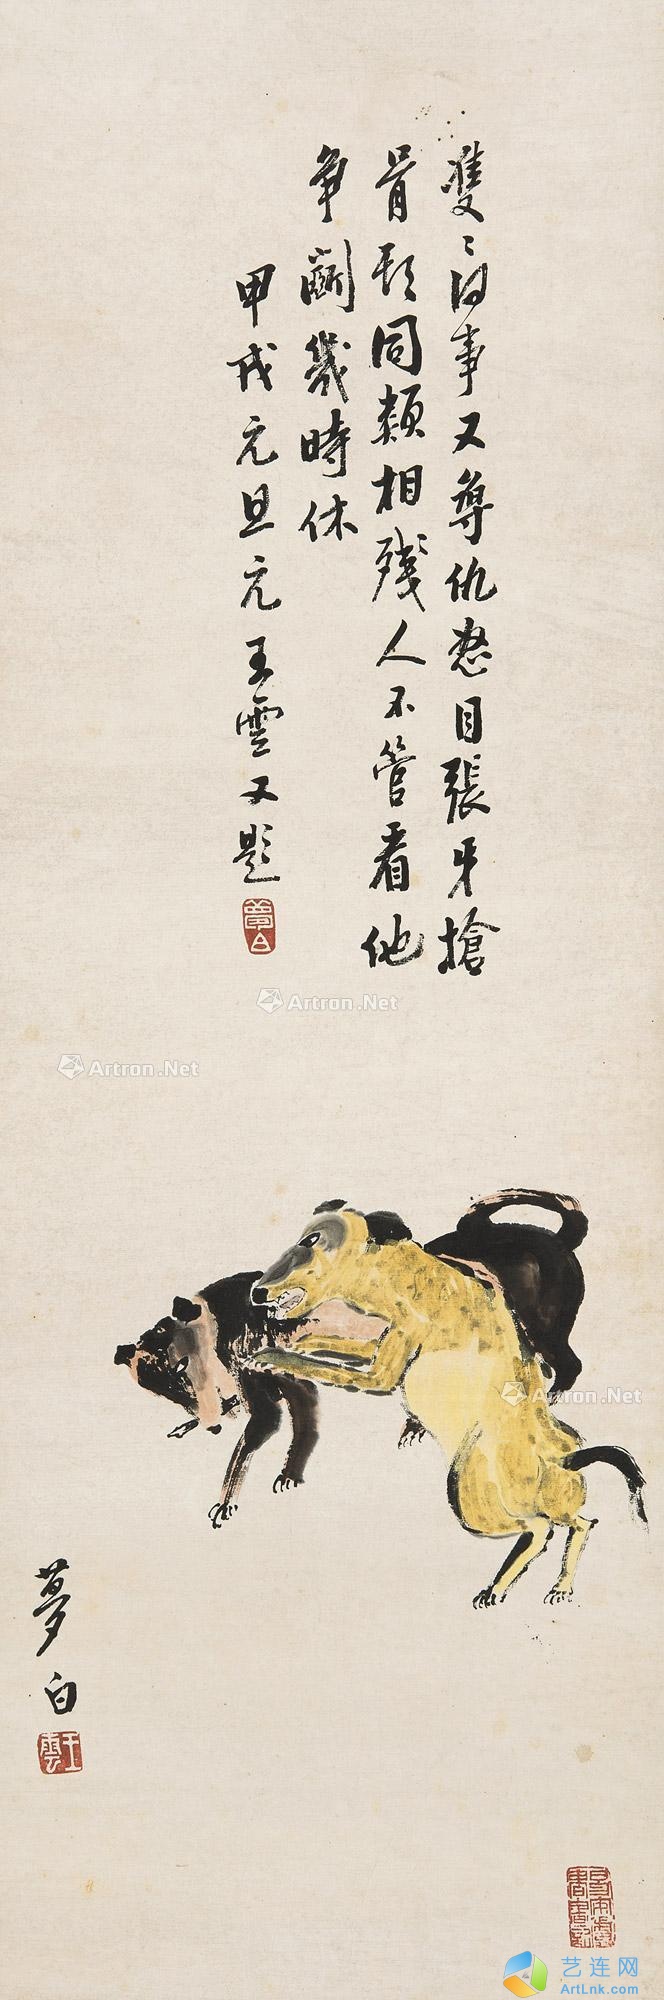 雙〻
事又尋仇怒目張牙搶
骨頭同類相殘人不管看他
爭鬬幾時休
甲戌元旦
王雲又題
夢白
夢白
王雲
Artron.Net
Artron.Net
Artron.Net
艺连网
ArtLnk.com